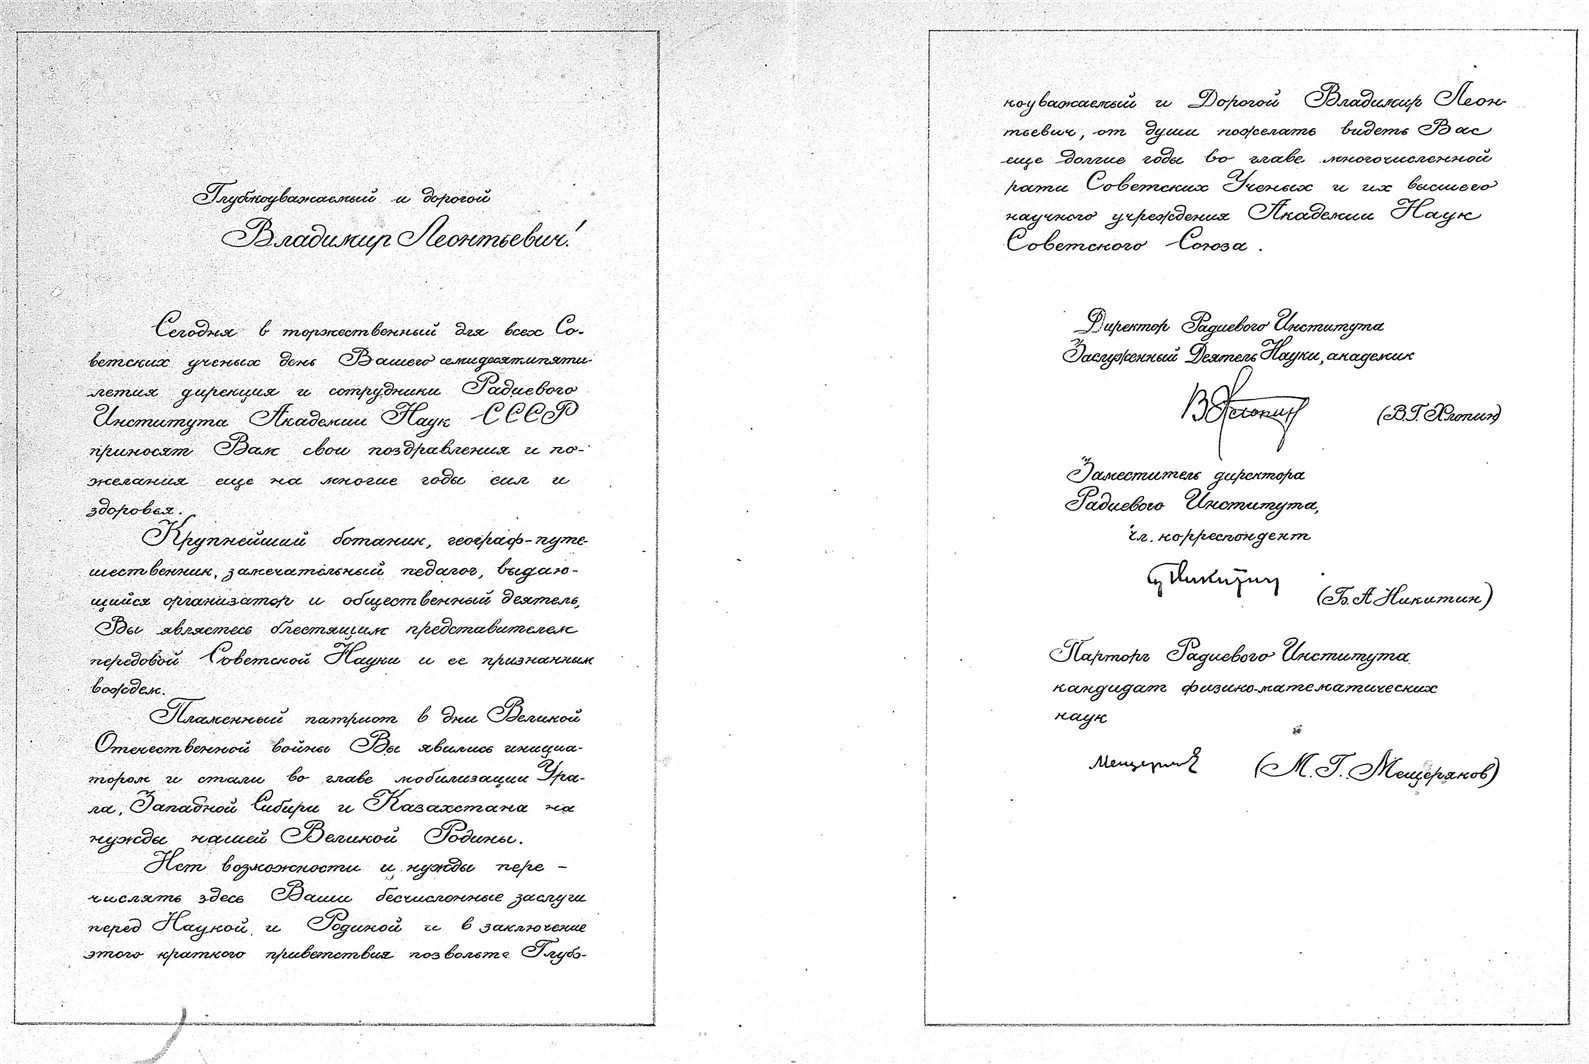 Глубкоуважаемый и дорогой
Владимир Леонтьевич!
Сегодня в торжественный для всех Со-
ветских ученых день Вашего семидесятипяти-
летия дирекция и сотрудники Радиевого
Института Академии Наук СССР
приносят Вам свои поздравления и по-
желания еще на многие годы сил и
здоровья.
Крупнейший ботаник, географ-путе-
шественник, замечательный педагог, выдаю-
щийся организатор и общественный деятель,
Вы являетесь блестящим представителем
передовой Советской Науки и ее признанным
вождем.
Пламенный патриот в дни Великой
Отечественной войны Вы явились инициа-
тором и стали во главе мобилизации Ура-
ла, Западной Сибири и Казахстана на
нужды нашей Великой Родины.
Нет возможности и нужды пере-
числять здесь Ваши бесчисленные заслуги
перед Наукой и Родиной и в заключение
этого краткого приветствия позвольте Глубо-
коуважаемый и Дорогой Владимир Леон-
тьевич, от души пожелать видеть Вас
еще долгие годы во главе многочисленной
рати Советских Ученых и их высшего
научного учреждения Академии Наук
Советского Союза.
Директор Радиевого Института
Заслуженный Деятель Науки, академик
ВХлопин (В.Г.Хлопин)
Заместитель директора
Радиевого Института,
чл. корреспондент
Никитин (Б.А Никитин)
Парторг Радиевого Института
кандидат физико-математических
наук
Мещеряк (М.Г. Мещеряков)